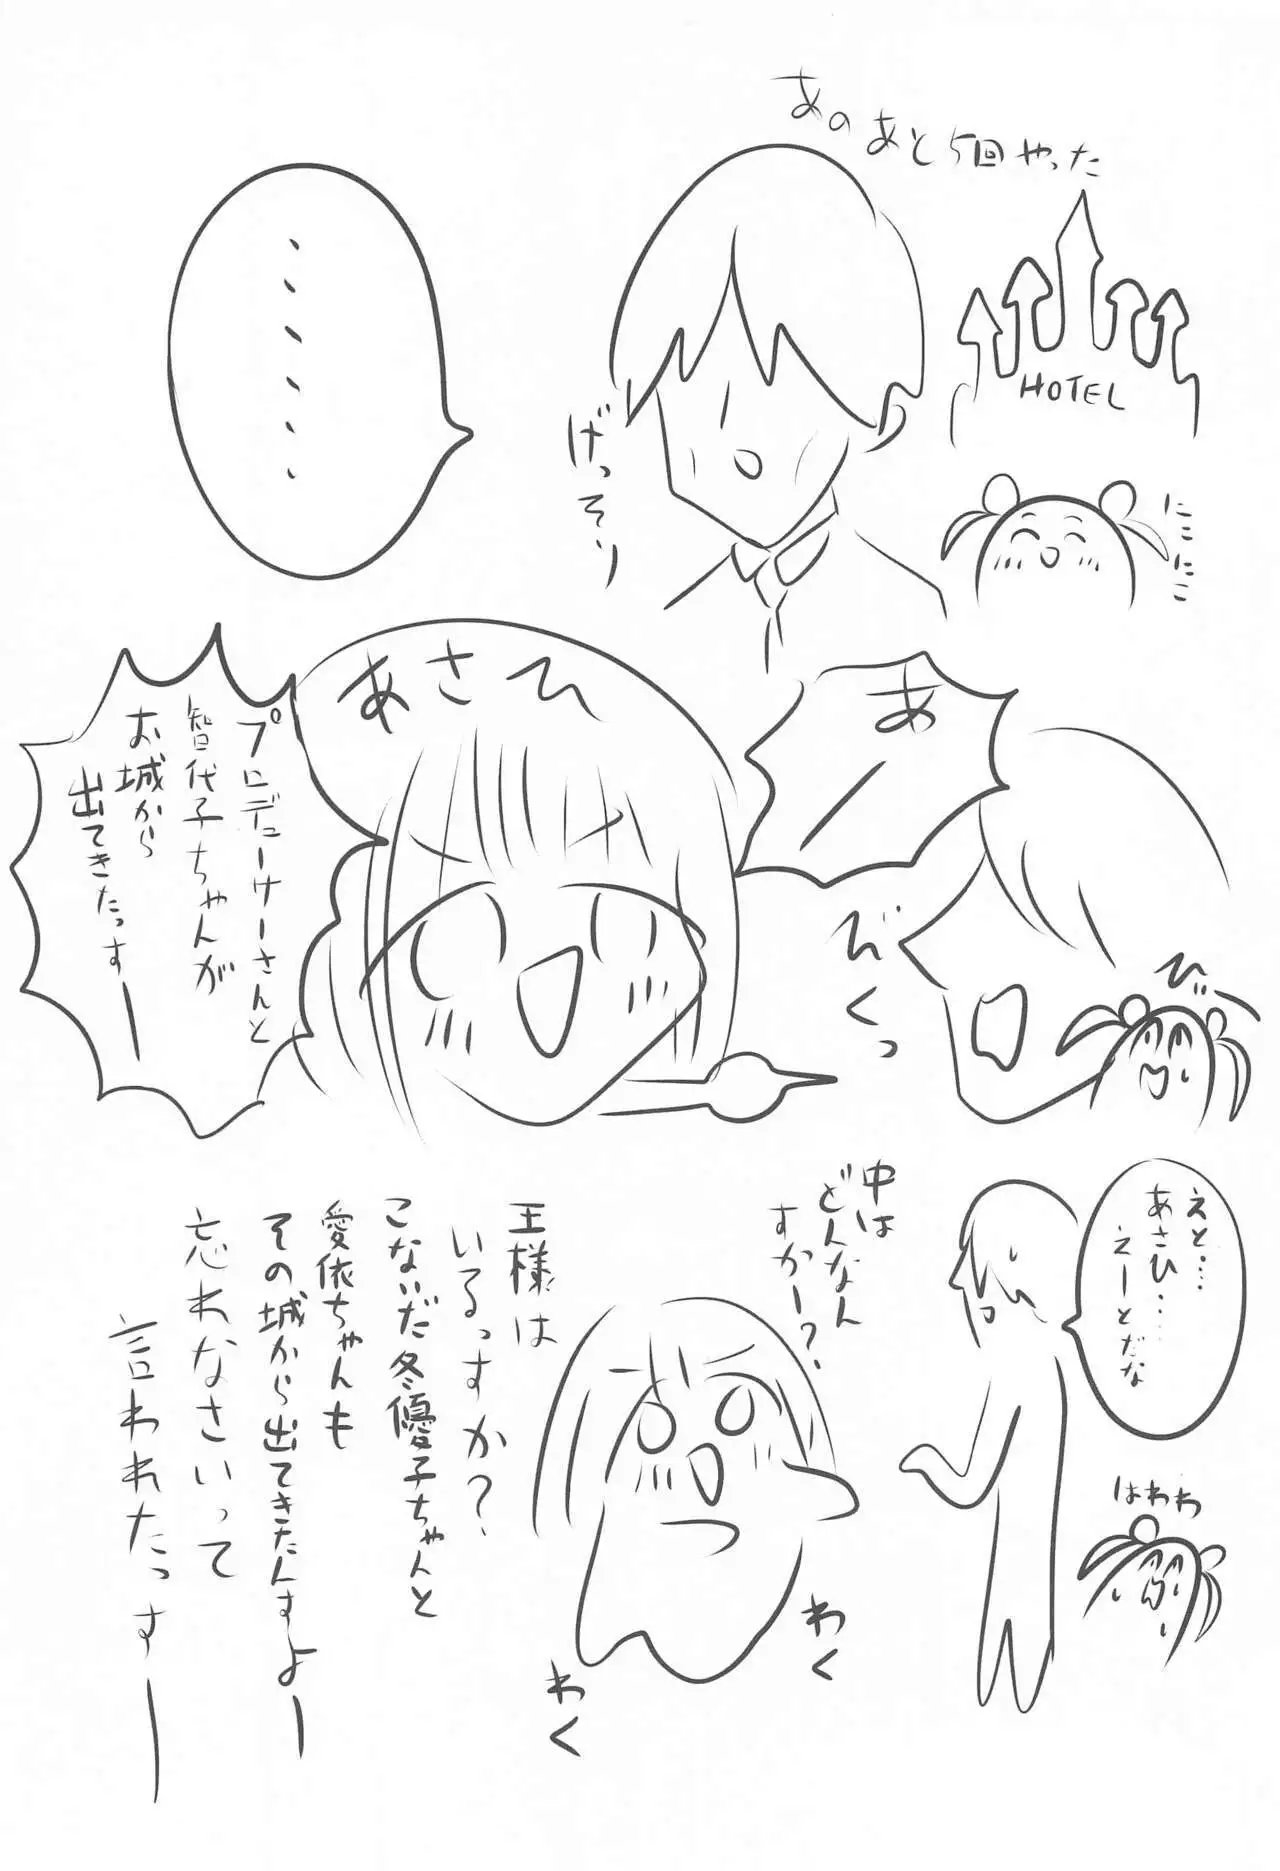 あのあと5回やった
HOTEL
にこにこ
げっそり
・・・・・・
あー
あさひ
プロデューサーさんと
智代子ちゃんが
お城から
出てきたっすー
びくっ
びくー
えと……
あさひ……
えーとだな
はわわ
中は
どんなん
すかー?
王様は
いるっすか?
こないだ冬優子ちゃんと
愛依ちゃんも
その城から出てきたんすよー
忘れなさいって
言われたっすー
わく
わく